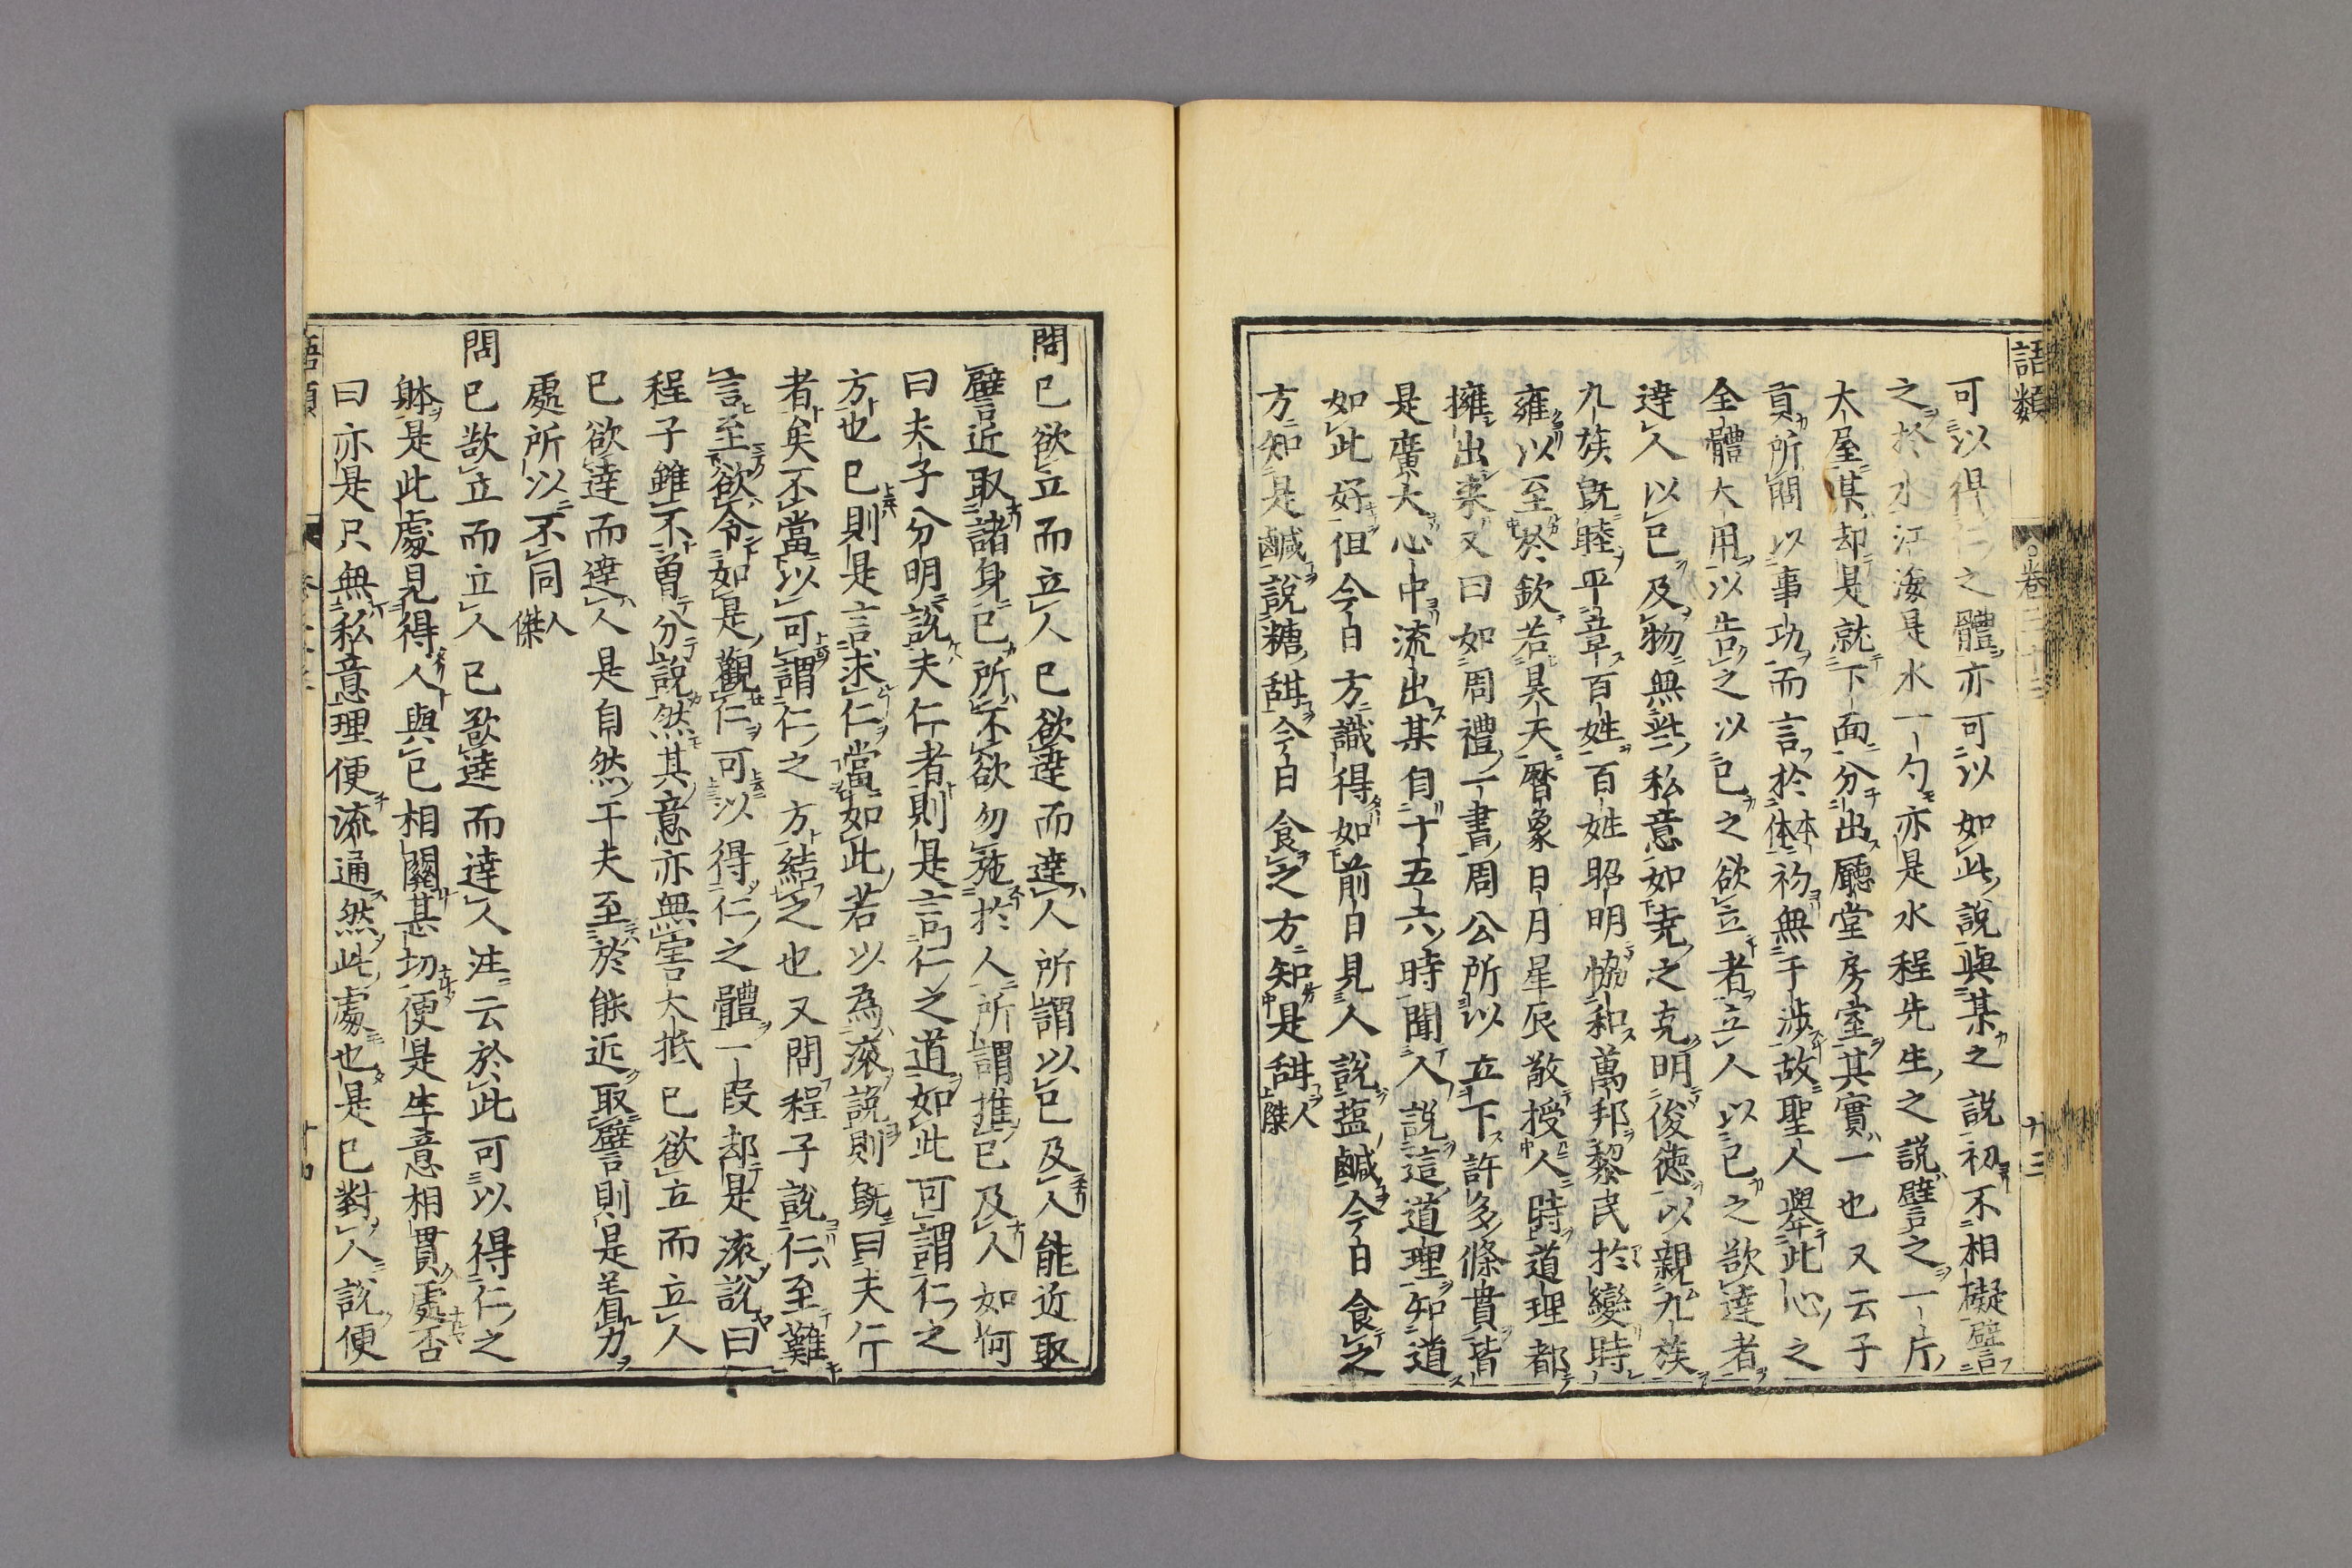 語類 卷三十三 九三
可以得仁之體亦可以如此說與某之說初不相礙譬
之於水江海是水一勺亦是水程先生之說譬之一片
大屋某却是就下面分出廳堂房室其實一也又云子
貢所問以事功而言於本体初無干涉故聖人舉此心之
全體大用以告之以己之欲立者立人以己之欲達者
達人以己及物無些私意如堯之克明俊德以親九族
九族既睦平章百姓百姓昭明恊和萬邦黎民於變時
雍以至於欽若昊天曆象日月星辰敬授人時道理都
擁出來又曰如周禮一書周公所以立下許多條貫皆
是廣大心中流出某自十五六時聞人說這道理知道
如此好但今日方識得如前日見人說塩鹹今日食之
方知是鹹說糖甜今日食之方知是甜人傑
問己欲立而立人己欲達而達人所謂以己及人能近取
譬近取諸身己所不欲勿施於人所謂推己及人如何
曰夫子分明說夫仁者則是言仁之道如此可謂仁之
方也已則是言求仁當如此若以為滚說則既曰夫仁
者矣不當以可謂仁之方結之也又問程子說仁至難
言至欲令如是觀仁可以得仁之體一段却是滚說曰
程子雖不曾分說然其意亦無害大抵己欲立而立人
己欲達而達人是自然工夫至於能近取譬則是着力
處所以不同人傑
問己欲立而立人己欲達而達人注云於此可以得仁之
躰是此處見得人與己相關甚切便是生意相貫處否
曰亦是只無私意理便流通然此處也是己對人說便
語類